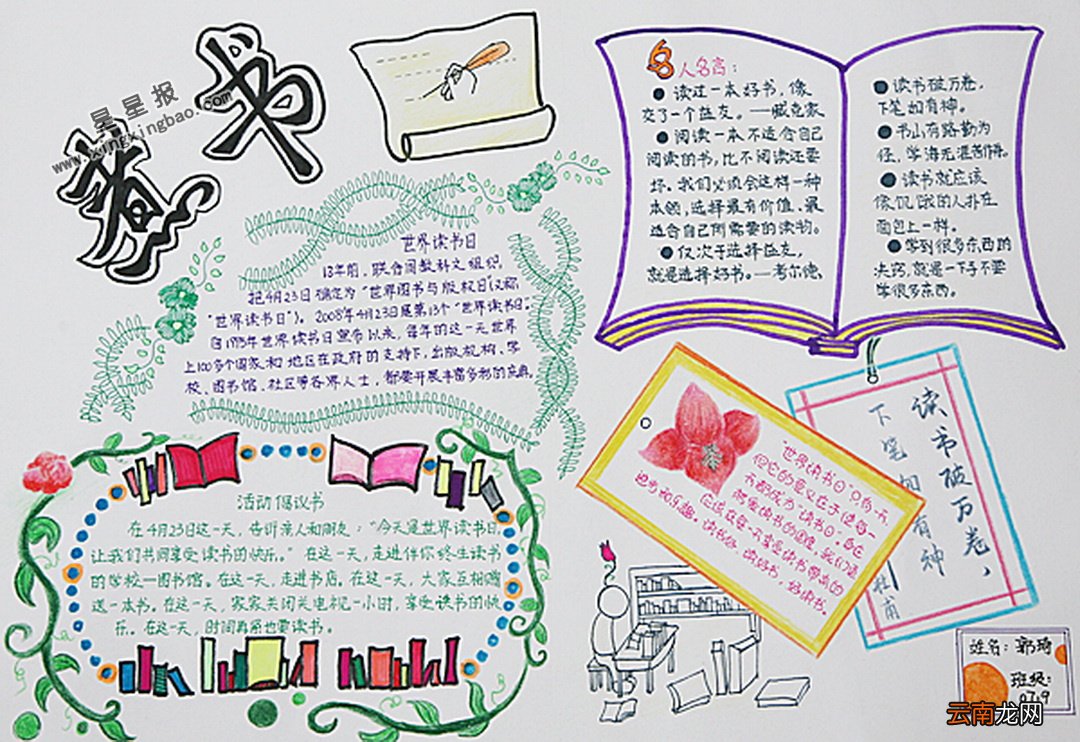 书
香
星星报
www.xingxingbao.com
世界读书日
13年前，联合国教科文组织，
把4月23日确定为“世界图书与版权日（又称
“世界读书日”）。2008年4月23日是第13个“世界读书日”。
自1995年世界读书日宣布以来，每年的这一天世界
上100多个国家和地区在政府的支持下，出版机构、学
校、图书馆、社区等各界人士，都要开展丰富多彩的庆典。
名人名言：
● 读过一本好书，像
交了一个益友。——臧克家
● 阅读一本不适合自己
阅读的书，比不阅读还要
坏。我们必须会这样一种
本领，选择最有价值、最
适合自己所需要的读物。
● 仅次于选择益友，
就是选择好书。—考尔德。
● 读书破万卷，
下笔如有神。
● 书山有路勤为
径，学海无涯苦作舟。
● 读书就应该
像饥饿的人扑在
面包上一样。
● 学到很多东西的
决窍，就是一下子不要
学很多东西。
活动倡议书
在4月23日这一天，告诉亲人和朋友：“今天是世界读书日，
让我们共同享受读书的快乐。”在这一天，走进伴你终生读书
的学校—图书馆。在这一天，走进书店。在这一天，大家互相赠
送一本书。在这一天，家家关闭关电视一小时，享受读书的快
乐。在这一天，时间再紧也要读书。
“世界读书日”只有一天，
但它的意义在于使每一
天都成为“读书日”。自己
应该在每一天享受读书带来的
读书好，读好书，好读书。
读书破万卷，
下笔如有神
杜甫
姓名：郭琦
班级：
07.9
云南龙网